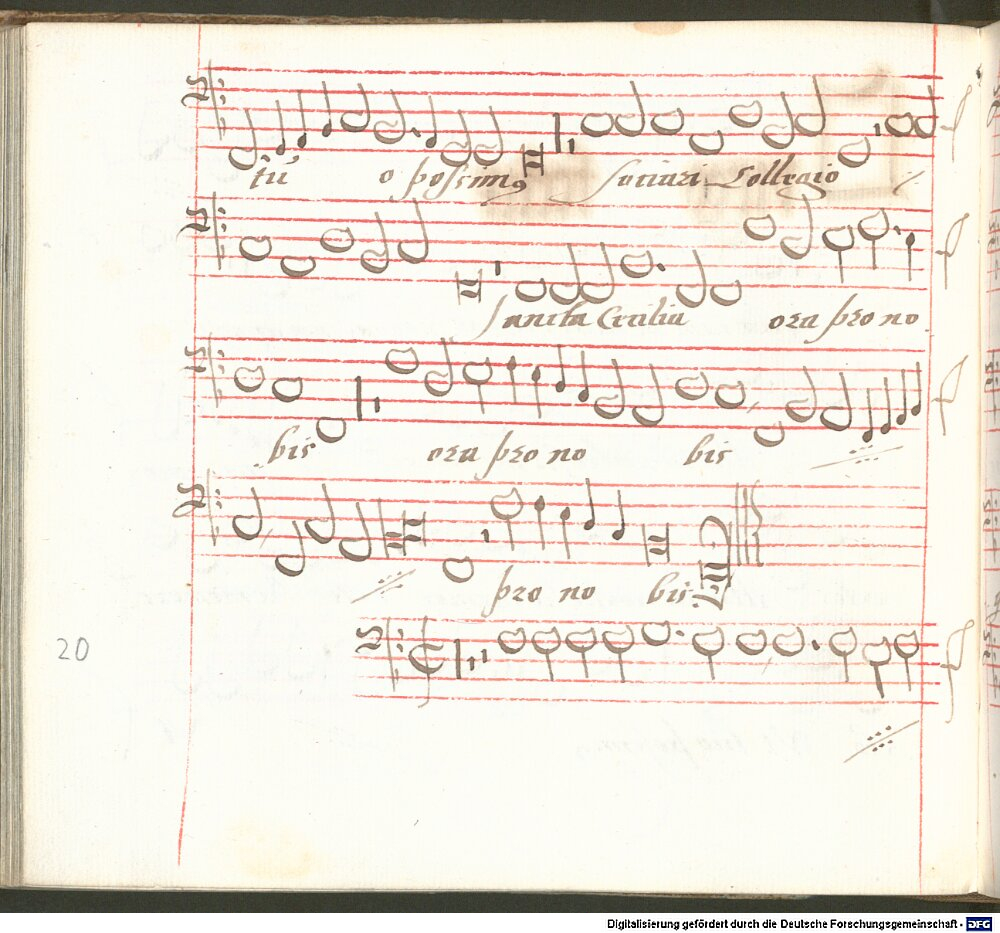 tū o possim9 sociari Collegio
Sancta Cecilia ora pro no
bis ora pro no bis
pro no bis
20
Digitalisierung gefördert durch die Deutsche Forschungsgemeinschaft - DFG